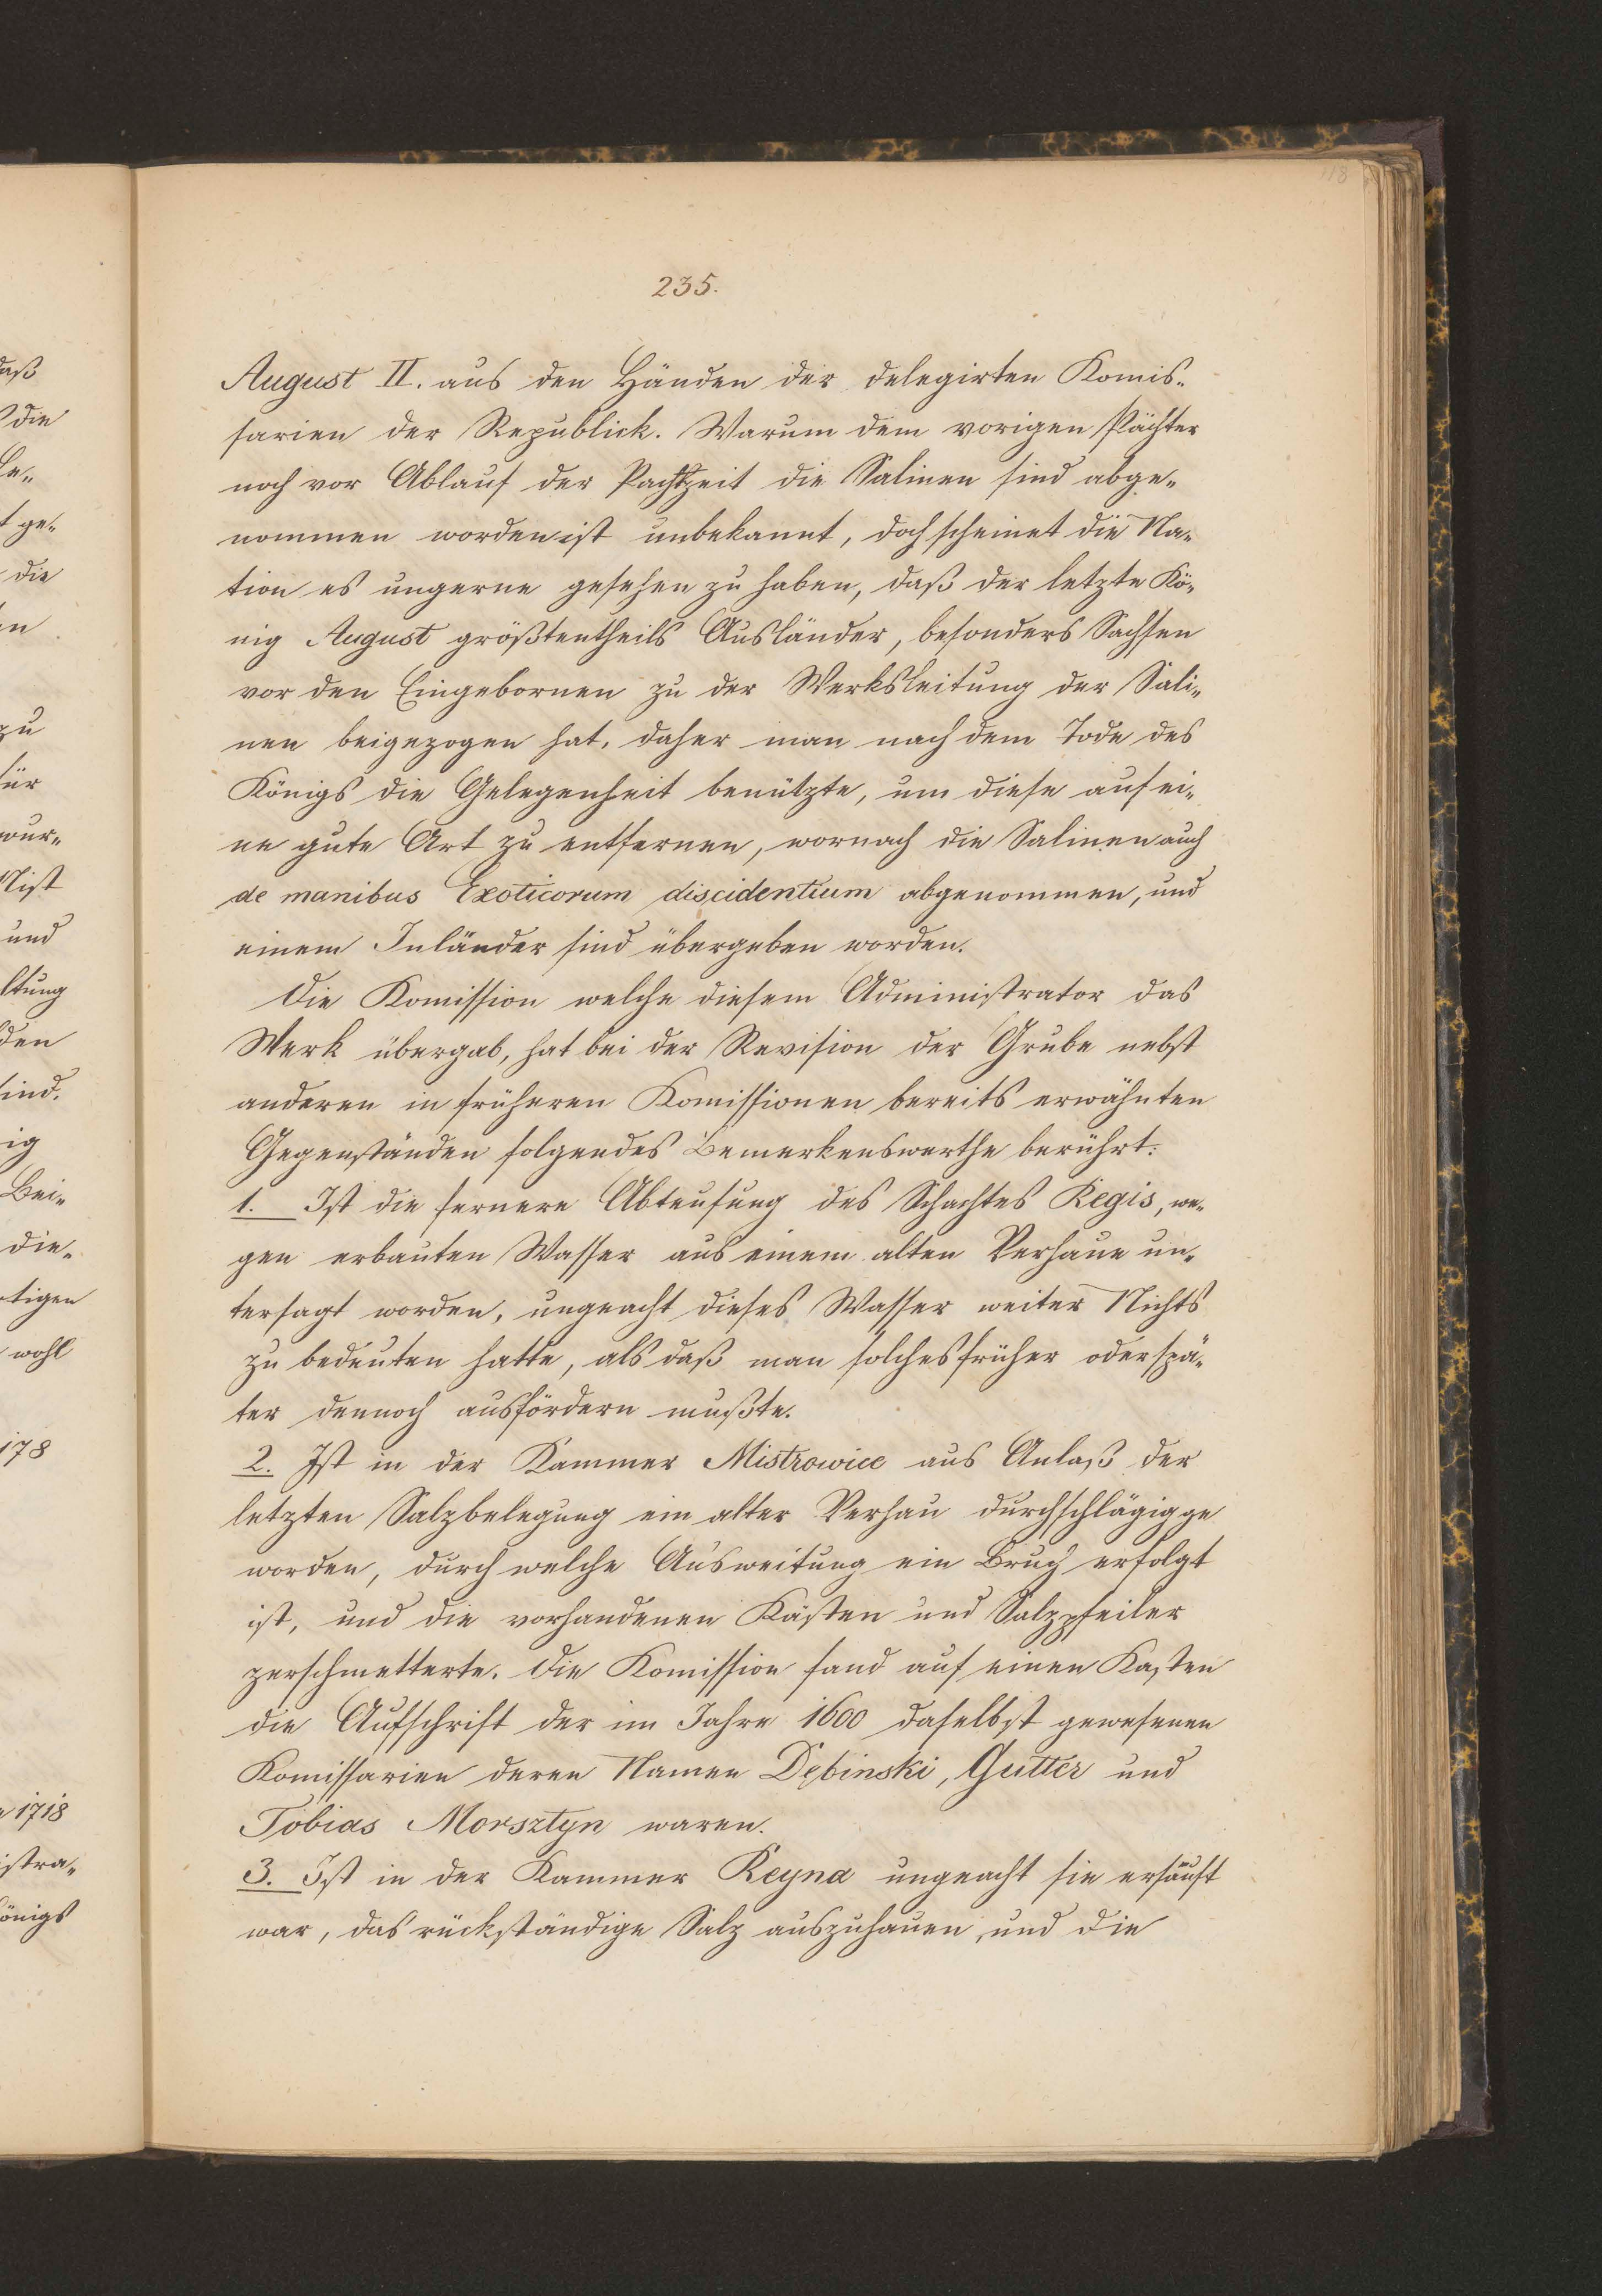 118
235.
August II. aus den Händen der delegirten Komis-
sarien der Republick. Warum dem vorigen Pächter
noch vor Ablauf der Pachtzeit die Salinen sind abge-
nommen worden ist unbekannt, doch scheinet die Na-
tion es ungerne gesehen zu haben, daß der letzte Kö-
nig August größtentheils Ausländer, besonders Sachsen
vor den Eingebornen zu der Werksleitung der Sali-
nen beigezogen hat, daher man nach dem Tode des
Königs die Gelegenheit benützte, um diese auf ei-
ne gute Art zu entfernen, wornach die Salinen auch
de manibus Exoticorum discidentium abgenommen, und
einem Inländer sind übergeben worden.
Die Komission welche diesem Administrator das
Werk übergab, hat bei der Revision der Grube nebst
anderen in früheren Komissionen bereits erwähnten
Gegenständen folgendes Bemerkenswerthe berührt:
1. Ist die fernere Abteufung des Schachtes Regis, we-
gen erbauten Wasser aus einem alten Verhaue un-
tersagt worden, ungeacht dieses Wasser weiter Nichts
zu bedeuten hatte, als daß man solches früher oder spä-
ter dennoch ausfördern mußte.
2. Ist in der Kammer Mistrowice aus Anlaß der
letzten Salzbelegung ein alter Verhau durchschlägig ge
worden, durch welche Ausweitung ein Bruch erfolgt
ist, und die vorhandenen Kästen und Salzpfeiler
zerschmetterte. Die Komission fand auf einen Kasten
die Aufschrift der im Jahre 1600 daselbst gewesenen
Komissarien deren Namen Dębinski, Gutter und
Tobias Morsztyn waren.
3. Ist in der Kammer Reyna ungeacht sie ersäuft
war, das rückständige Salz auszuhauen, und die
daß
die
ge-
die
zu
für
wur-
und
ltung
den
sind.
ig
Bei-
die-
tigen
wohl
178
1718
istra-
önigs